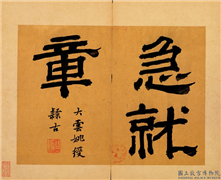 急就
章
大雲姚綬
隸古
國立故宮博物院